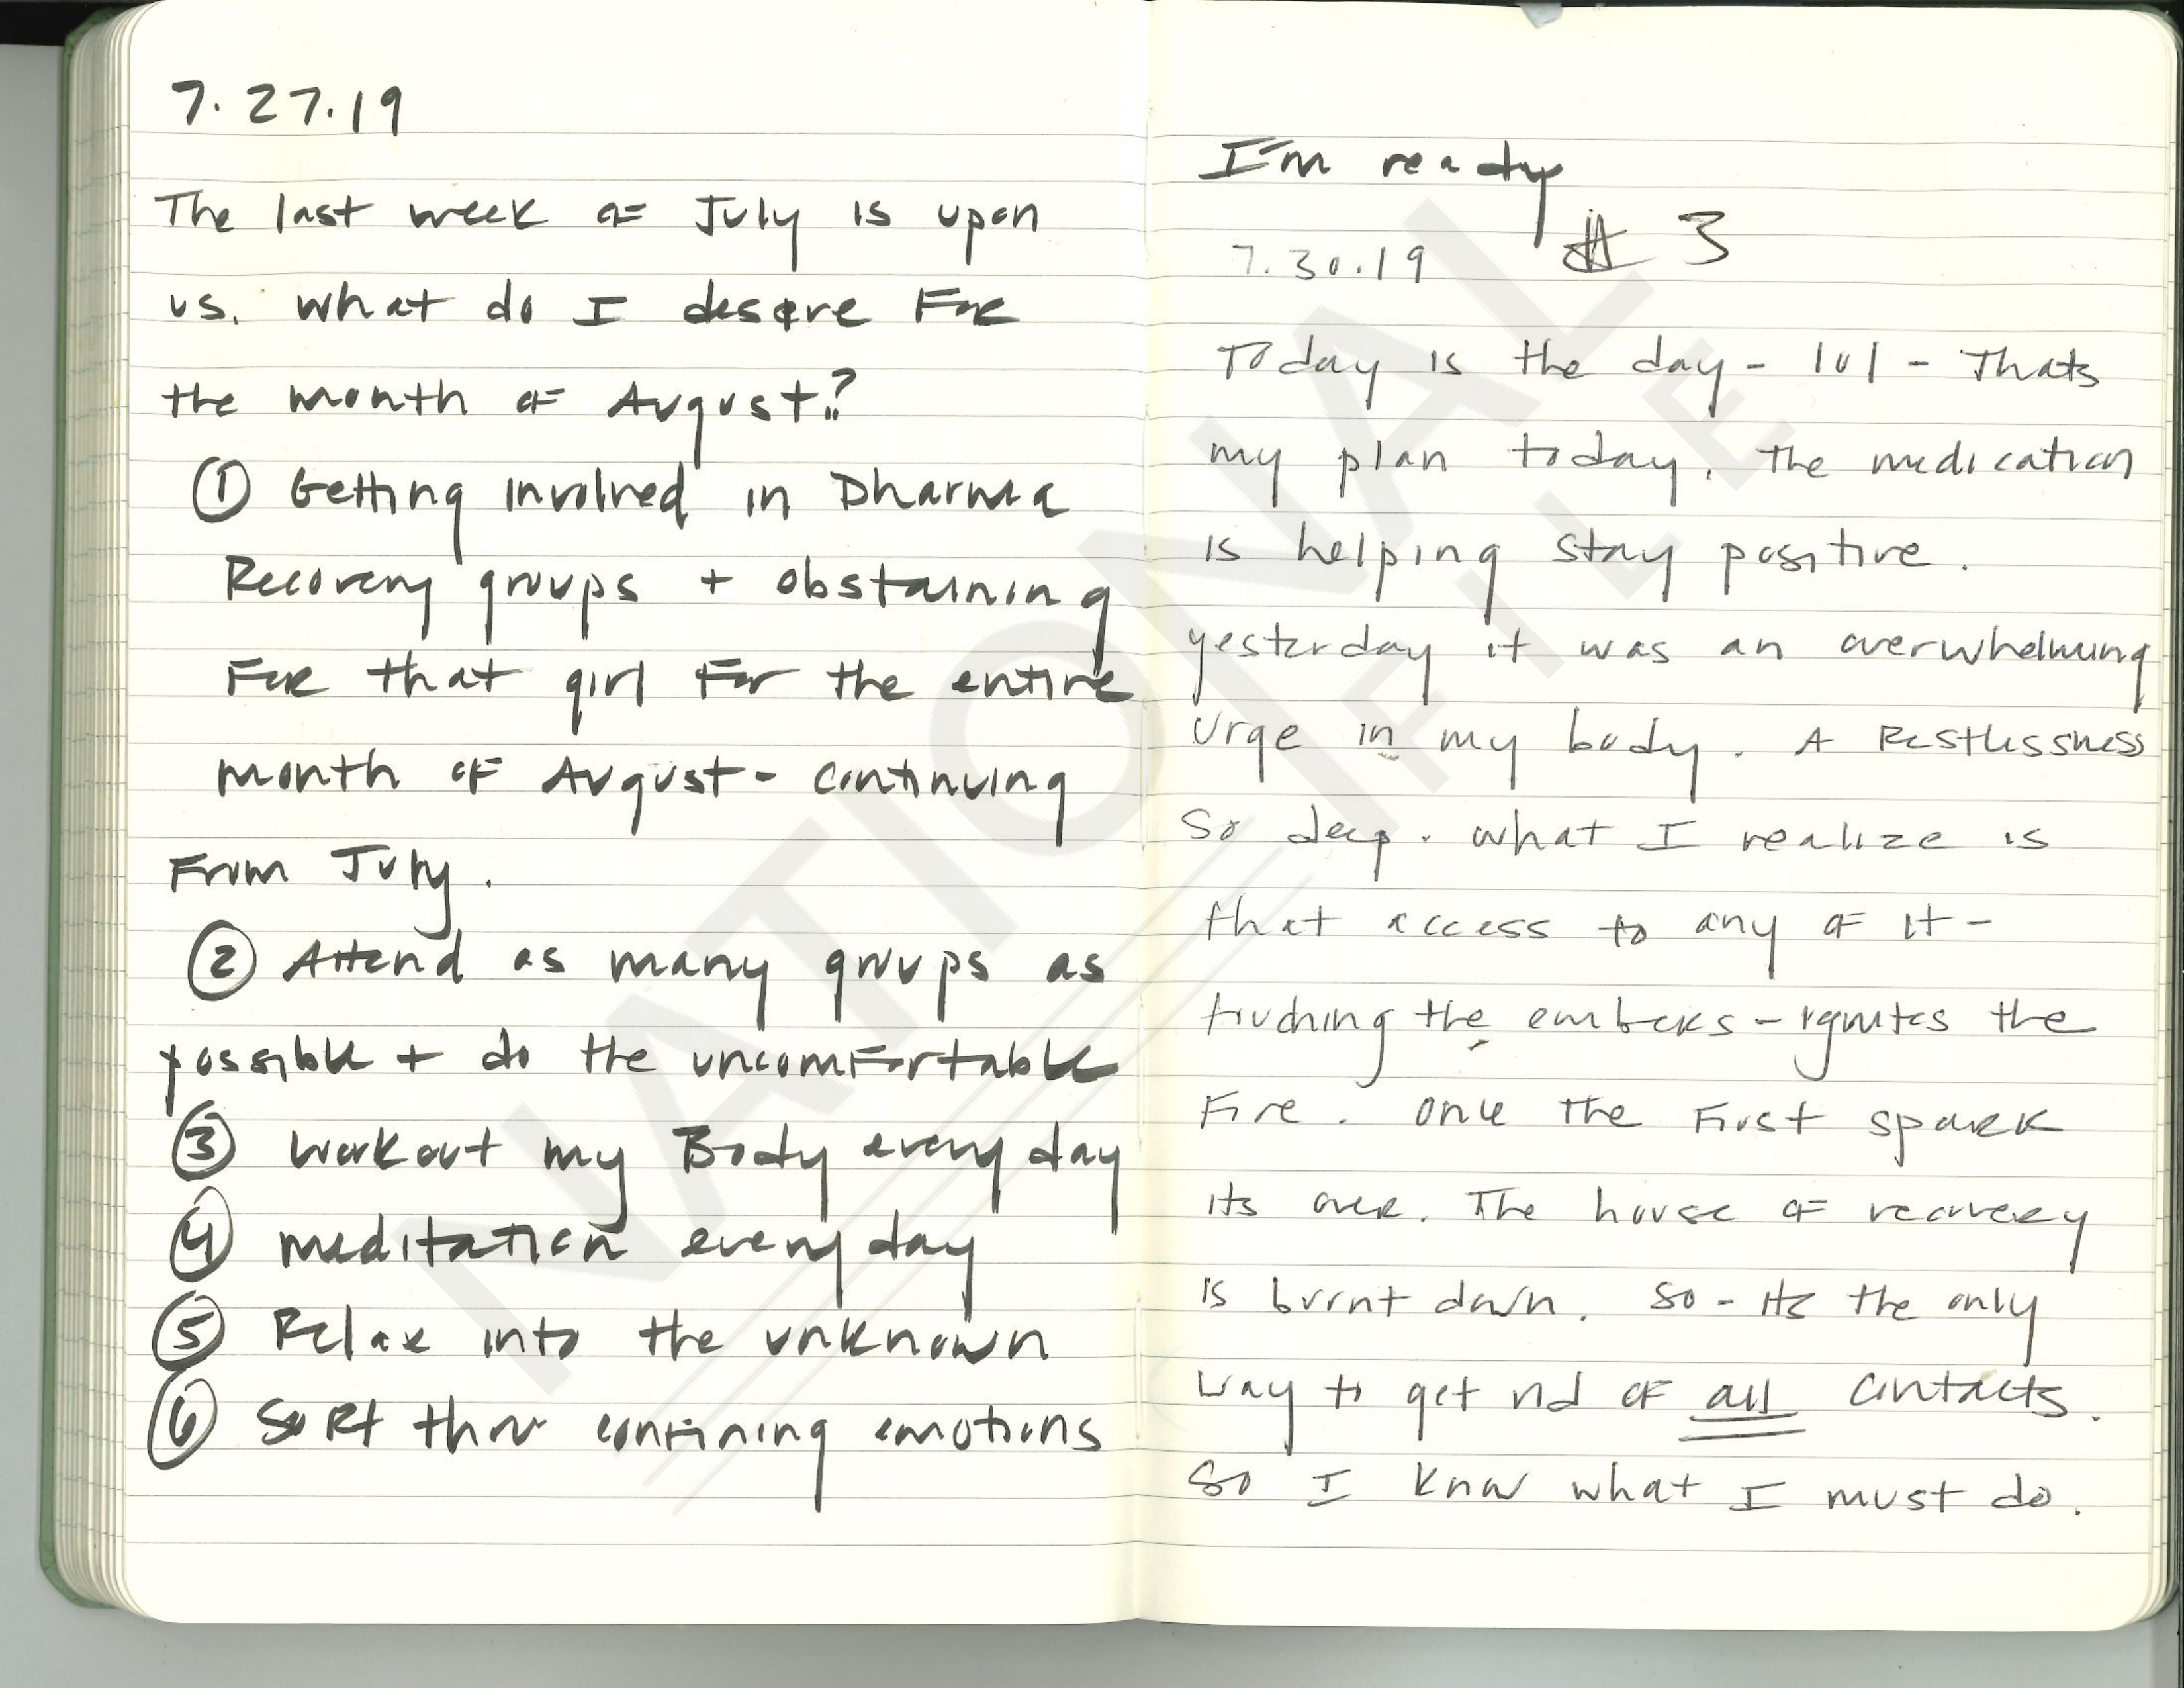 7.27.19
The last week of July is upon
us. What do I desire For
the month of August?
① Getting involved in Dharma
Recovery groups + obstaining
For that girl For the entire
month of August - continuing
From July.
② Attend as many groups as
possible + do the uncomfortable
③ workout my Body every day
④ meditation every day
⑤ Relax into the unknown
⑥ Sort thru emotions
I'm ready
7.30.19 # 3
Today is the day - lol - Thats
my plan today. The medication
is helping stay positive.
yesterday it was an overwhelming
urge in my body. A Restlessness
So deep. What I realize is
that access to any of it -
touching the embers - ignites the
Fire. Once the First spark
its over. The house of recovery
is burnt down. So - its the only
way to get rid of all contacts.
So I know what I must do.
NATIONAL
FILE